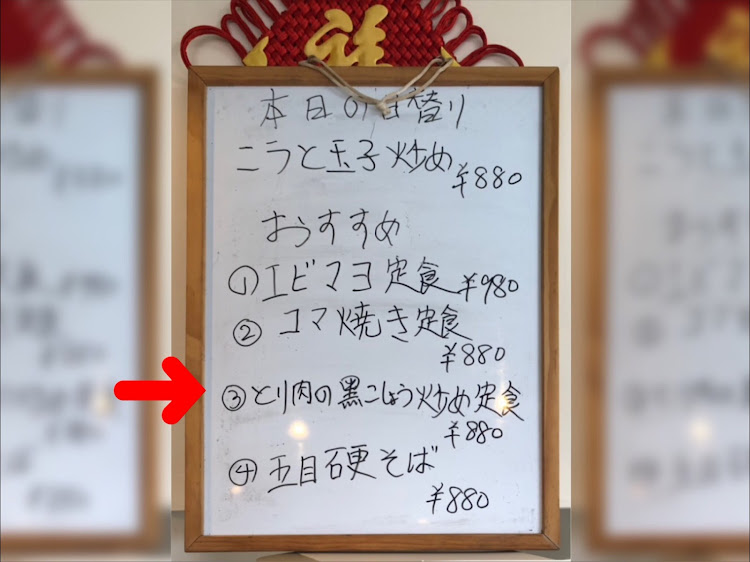 本日の日替り
ニラと玉子炒め
¥880
おすすめ
①エビマヨ定食 ¥980
②コマ焼き定食
¥880
③とり肉の黒こしょう炒め定食
¥880
④五目硬そば
¥880